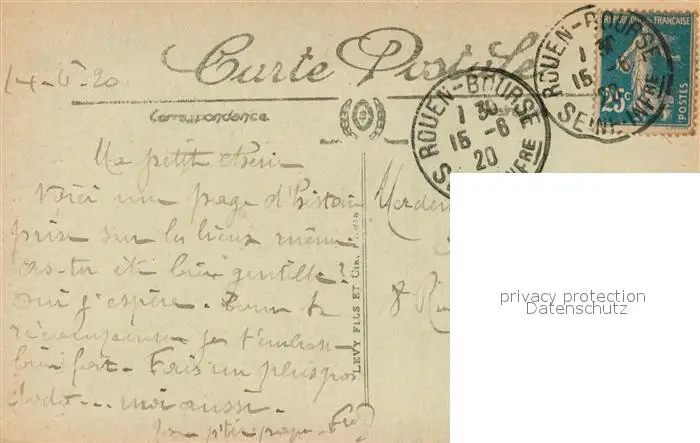 14-6-20
Carte Postale
Correspondance
RÉPUBLIQUE FRANÇAISE
25c
POSTES
ROUEN-BOURSE
1 30
15 -6
20
SEINE INFRE
ROUEN-BOURSE
1 30
15 -6
20
S INFRE
Ma petit chérie
Voici une page d'histoire
prise sur les lieux même
es-tu été bien gentille?
oui j'espère. Pour te
récompenser je t'embrasse
bien fort. Fais un plus gros
dodo... moi aussi.
Ton p'tit papa. Fred
LEVY FILS ET CIE, PARIS
8 Ru
privacy protection
Datenschutz